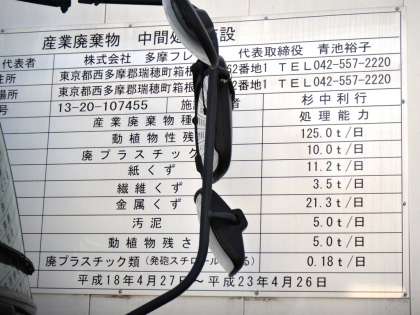 産業廃棄物 中間処 設
代表者 株式会社 多摩フレ 代表取締役 青池裕子
住所 東京都西多摩郡瑞穂町箱根 62番地1 TEL042-557-2220
場所 東京都西多摩郡瑞穂町箱根 62番地1 TEL042-557-2220
号 13-20-107455 施 者 杉中利行
産業廃棄物種 処理能力
動植物性残 125.0t/日
廃プラスチック 10.0t/日
紙くず 11.2t/日
繊維くず 3.5t/日
金属くず 21.3t/日
汚泥 5.0t/日
動植物残さ 5.0t/日
廃プラスチック類(発砲スチロール る) 0.18t/日
平成18年4月27日~平成23年4月26日